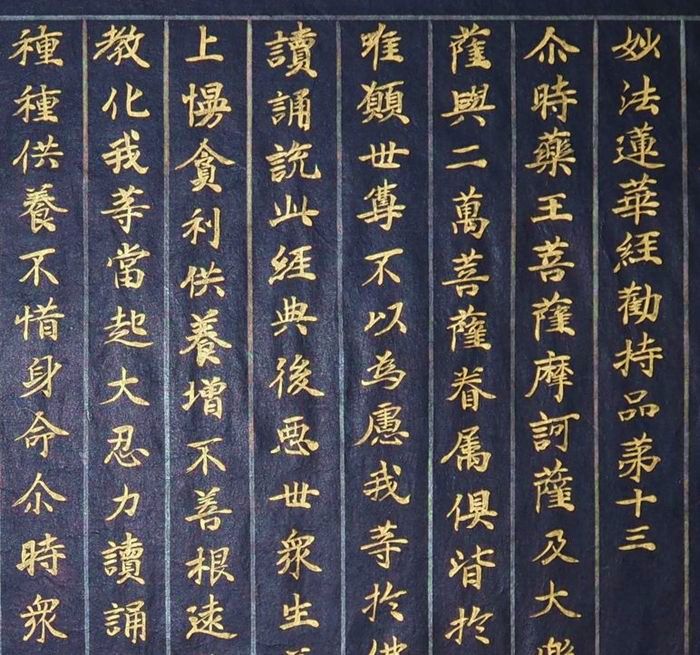 妙法蓮華經勸持品苐十三
尒時藥王菩薩摩訶薩及大樂
薩與二萬菩薩眷属俱皆於
唯願世尊不以為慮我等於佛
讀誦說此經典後惡世衆生
上慢貪利供養增不善根遠
教化我等當起大忍力讀誦
種種供養不惜身命尒時衆